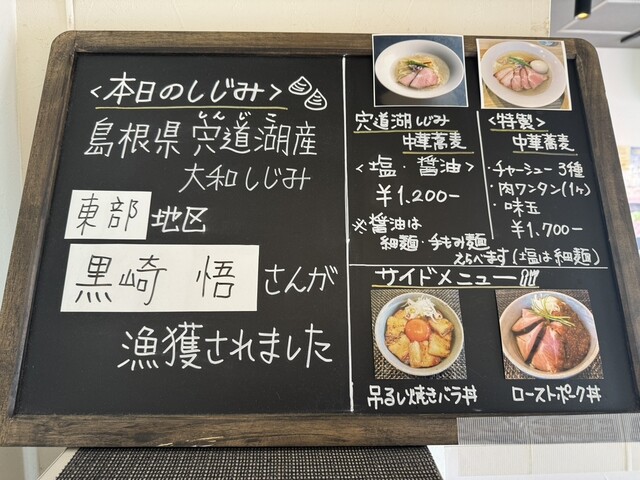 <本日のしじみ>
しんじこ
島根県 宍道湖産
大和しじみ
東部 地区
黒崎 悟 さんが
漁獲されました
宍道湖しじみ
中華蕎麦
<塩・醤油>
¥1.200-
※醤油は
細麺・手もみ麺
えらべます(塩は細麺)
<特製>
中華蕎麦
・チャーシュー3種
・肉ワンタン(1ヶ)
・味玉
¥1.700-
サイドメニュー
吊るし焼きバラ丼
ローストポーク丼